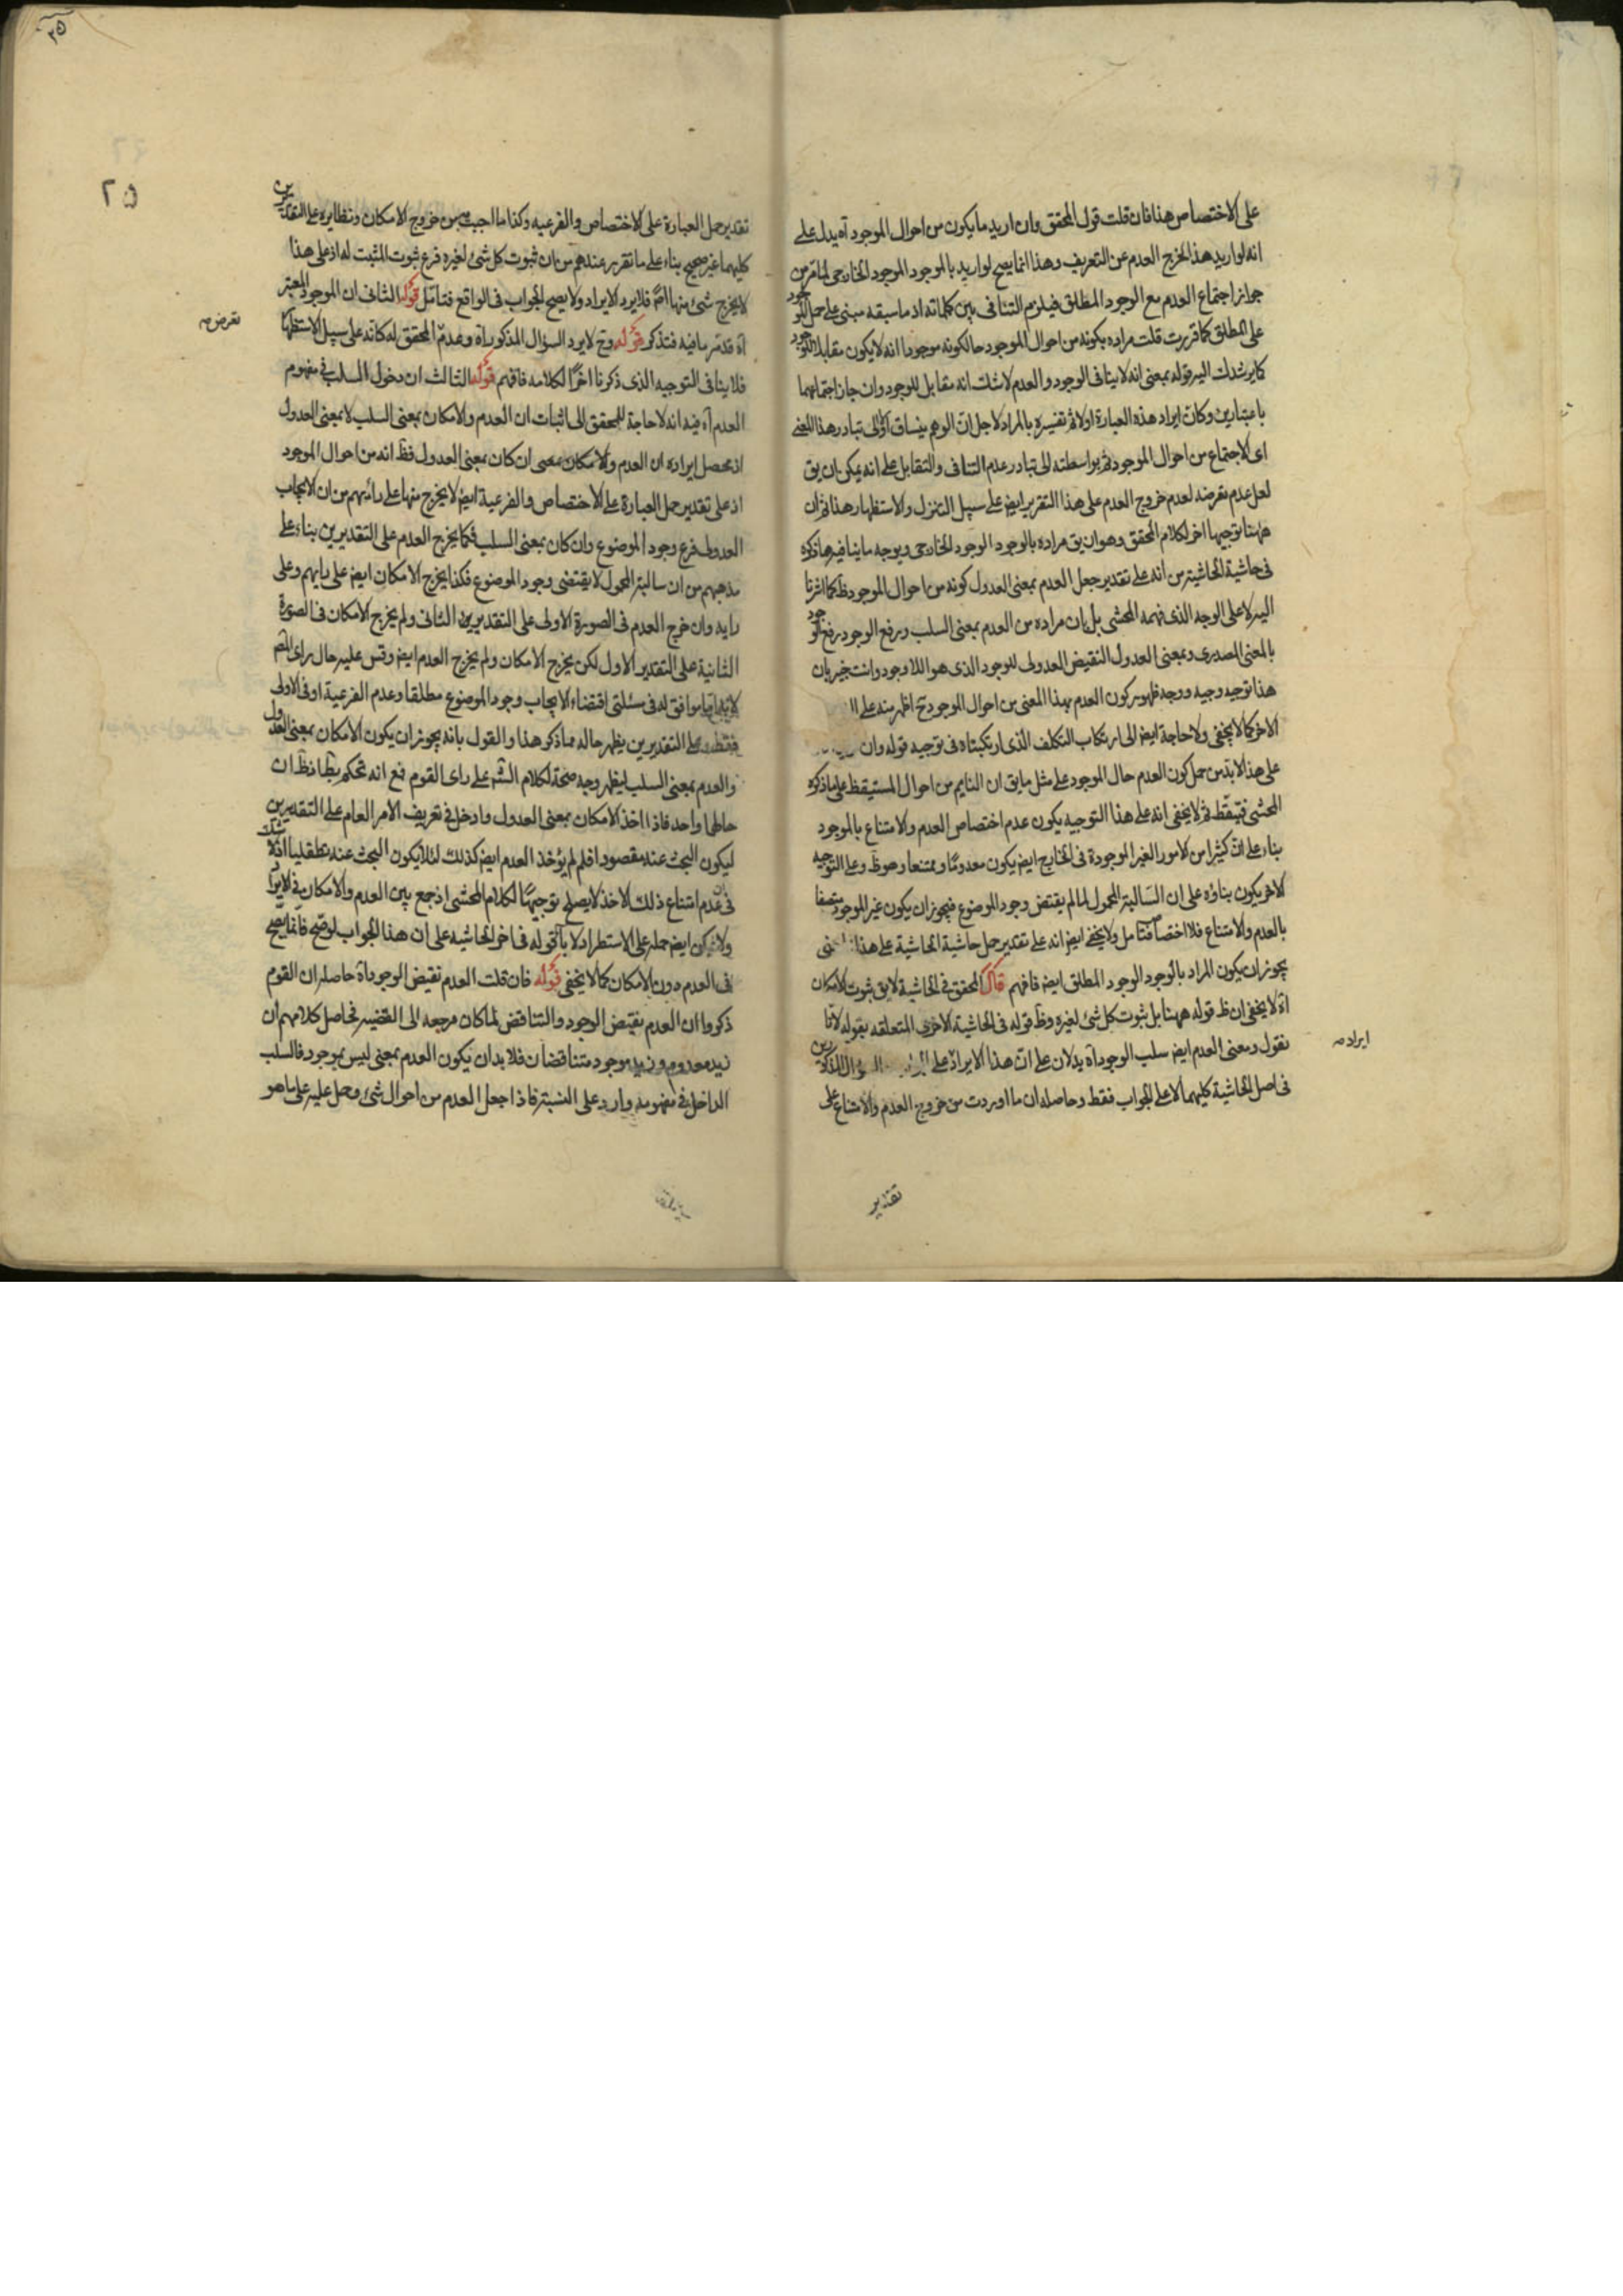 على الاختصاص هذا فان قلت قول المحقق وان اريد ما يكون من احوال الموجود آه يدل على
انه لو اريد هذا لخرج العدم عن التعريف وهذا انما يصح لو اريد بالموجود الموجود الخارجى لما مر من
جواز اجتماع العدم مع الوجود المطلق فيلزم التنافى بين كلماته اذ ما سبقه مبنى على حمل الوجود
على المطلق كما قررت قلت مراده بكونه من احوال الموجود حال كونه موجودا انه لا يكون مقابلا للوجود
كما يرشدك اليه قوله بمعنى انه لا ينافى الوجود والعدم لا شك انه مقابل للوجود وان جاز اجتماعهما
باعتبارين وكان ايراد هذه العبارة اولا ثم تفسيره بالمراد لاجل ان الوهم ينساق الى تبادر هذا المعنى
اى الاجتماع من احوال الموجود ثم بواسطته الى تبادر عدم التنافى والتقابل على انه يمكن ان يق
لعل عدم تعرضه لعدم خروج العدم على هذا التقرير ايض على سبيل التنزل والاستظهار هذا ثم ان
ههنا توجيها اخر لكلام المحقق وهو ان يق مراده بالوجود الوجود الخارجى ويوجه ما ينافيه ما ذكره
فى حاشية الحاشية من انه على تقدير جعل العدم بمعنى العدول كونه من احوال الموجود ظ كما اشرنا
اليه لا على الوجه الذى فهمه المحشى بل بان مراده من العدم بمعنى السلب ورفع الوجود رفع الوجود
بالمعنى المصدرى وبمعنى العدول النقيض العدولى للوجود الذى هو اللاوجود وانت خبير بان
هذا توجيه وجيه ووجه ظهور كون العدم بهذا المعنى من احوال الموجود ح اظهر منه على
الاخر كما لا يخفى ولا حاجة ايض الى ارتكاب التكلف الذى ارتكبناه فى توجيه قوله وان
على هذا لا بد من حمل كون العدم حال الموجود على مثل ما يق ان النايم من احوال المستيقظ على ما ذكره
المحشى فتيقظ ثم لا يخفى انه على هذا التوجيه يكون عدم اختصاص العدم والامتناع بالموجود
بناء على ان كثيرا من الامور الغير الموجودة فى الخارج ايض يكون معدوما وممتنعا وهو ظ وعلى التوجيه
الاخر يكون بناؤه على ان السالبة المحمول لما لم يقتض وجود الموضوع فيجوز ان يكون غير الموجود متصفا
بالعدم والامتناع فلا اختصاص فتامل ولا يخفى ايض انه على تقدير حمل حاشية الحاشية على هذا
يجوز ان يكون المراد بالوجود الوجود المطلق ايض فافهم قال المحقق فى الحاشية لا يق ثبوت الامكان
آه لا يخفى ان ظ قوله ههنا بل ثبوت كل شئ لغيره وظ قوله فى الحاشية الاخرى المتعلقه بقوله لانا
نقول ومعنى العدم ايض سلب الوجود آه يدلان على ان هذا الايراد على السؤال المذكورين
ايراد صه
فى اصل الحاشية كليهما لا على الجواب فقط وحاصله ان ما اوردت من خروج العدم والامتناع على
تقدير
٣٥
٢٥
تقدير حمل العبارة على الاختصاص والفرعيه وكذا ما اجبت به من خروج الامكان ونظايره على التقديرين
كليهما غير صحيح بناء على ما تقرر عندهم من ان ثبوت كل شئ لغيره فرع ثبوت المثبت له اذ على هذا
لا يخرج شئ منها اصلا فلا يرد الايراد ولا يصح الجواب فى الواقع فتامل قوله الثانى ان الموجود المعتبر
آه قد مر ما فيه فتذكر قوله وح لا يرد السؤال المذكور آه وعدم المحقق له كانه على سبيل الاستظهار
تعرض صه
فلا ينافى التوجيه الذى ذكرنا اخرا لكلامه فافهم قوله الثالث ان دخول السلب فى مفهوم
العدم آه فيه انه لا حاجة للمحقق الى اثبات ان العدم والامكان بمعنى السلب لا بمعنى العدول
اذ محصل ايراده ان العدم والامكان بمعنى ان كان بمعنى العدول فظ انه من احوال الموجود
اذ على تقدير حمل العبارة على الاختصاص والفرعية ايض لا يخرج منها على رايهم من ان الايجاب
العدولى فرع وجود الموضوع وان كان بمعنى السلب فكما يخرج العدم على التقديرين بناء على
مذهبهم من ان سالبة المحمول لا يقتضى وجود الموضوع فكذا يخرج الامكان ايض على رايهم وعلى
رايه وان خرج العدم فى الصورة الاولى على التقديرين الثانى ولم يخرج الامكان فى الصورة
الثانية على التقدير الاول لكن يخرج الامكان ولم يخرج العدم ايض وقس عليه حال راى المص
موافق له فى مسئلتى اقتضاء الايجاب وجود الموضوع مطلقا وعدم الفرعية او فى الاولى
فقط على التقديرين يظهر حاله مما ذكر هذا والقول بانه يجوز ان يكون الامكان بمعنى العدول
والعدم بمعنى السلب ليظهر وجه صحة لكلام الش على راى القوم فمع انه تحكم بظ اذ ظ ان
حالهما واحد فاذا اخذ الامكان بمعنى العدول وادخل فى تعريف الامر العام على التقديرين
ليكون البحث عنه مقصودا فلم لم يؤخذ العدم ايض كذلك لئلا يكون البحث عنه تطفليا اذ لا شك
فى عدم امتناع ذلك الاخذ لا يصلح توجيها لكلام المحشى اذ جمع بين العدم والامكان فى الايراد
ولا يمكن ايض حمله على الاستطراد لا باء قوله فى اخر الحاشيه على ان هذا الجواب لو صح فانما يصح
فى العدم دون الامكان كما لا يخفى قوله فان قلت العدم نقيض الوجود آه حاصله ان القوم
ذكروا ان العدم نقيض الوجود والتناقض لما كان مرجعه الى القضية فحاصل كلامهم ان
زيد معدوم وزيد موجود متناقضان فلا بد ان يكون العدم بمعنى ليس بموجود فالسلب
الداخل فى مفهومه وارد على النسبة فاذا جعل العدم من احوال شئ وحمل عليه على ما هو